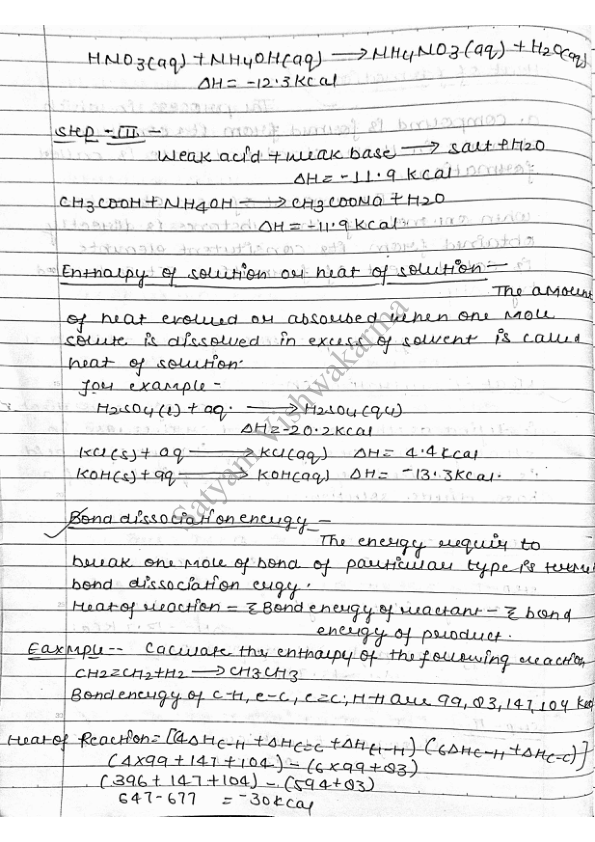 HNO3(aq) + NH4OH(aq) ⟶ NH4NO3(aq) + H2O(aq)
ΔH = -12.3 Kcal
Step - III -
Weak acid + weak base ⟶ salt + H2O
ΔH = -11.9 Kcal
CH3COOH + NH4OH ⟶ CH3COONa + H2O
ΔH = -11.9 Kcal
Enthalpy of solution or heat of solution :-
The amount
of heat evolved or absorbed when one mole
solute is dissolved in excess of solvent is called
heat of solution.
for example -
H2SO4(l) + aq. ⟶ H2SO4(aq)
ΔH = -20.2 Kcal
KCl(s) + aq ⟶ KCl(aq) ΔH = 4.4 Kcal
KOH(s) + aq ⟶ KOH(aq) ΔH = -13.3 Kcal.
Satyam Vishwakarma
Bond dissociation energy -
The energy requir to
break one mole of bond of particular type is
bond dissociation engy.
Heat of reaction = Σ Bond energy of reactant - Σ bond
energy of product.
Eaxmple -- Caculate the enthalpy of the following reaction
CH2=CH2 + H2 ⟶ CH3CH3
Bond energy of C-H, C-C, C=C, H-H are 99, 83, 147, 104 Kcal
Heat of Reaction = [4ΔHC-H + ΔHC=C + ΔH(H-H) (6ΔHC-H + ΔHC-C)]
(4x99 + 147 + 104) - (6x99 + 83)
(396 + 147 + 104) - (594 + 83)
647 - 677 = -30 Kcal